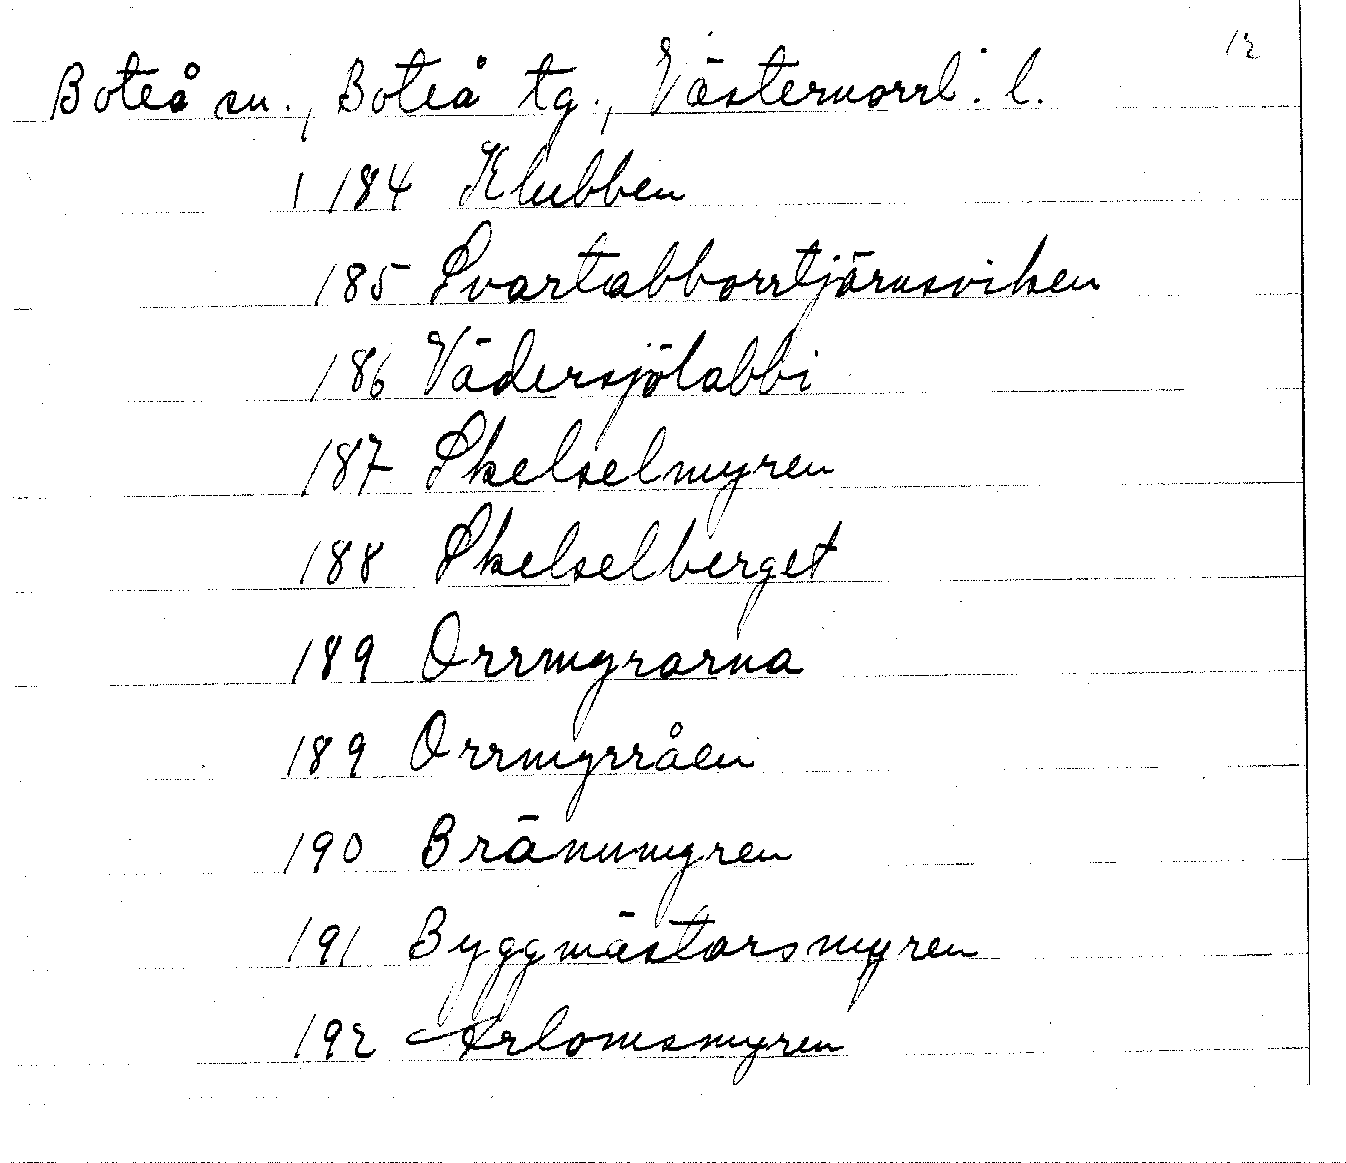 12
Boteå sn., Boteå tg., Västernorrl. l.
1 184 Klubben
185 Svartabborrtjärnsviken
186 Vädersjölabbi
187 Skelselmyren
188 Skelselberget
189 Orrmyrarna
189 Orrmyrråen
190 Brännmyren
191 Byggmästarsmyren
192 Arlomsmyren